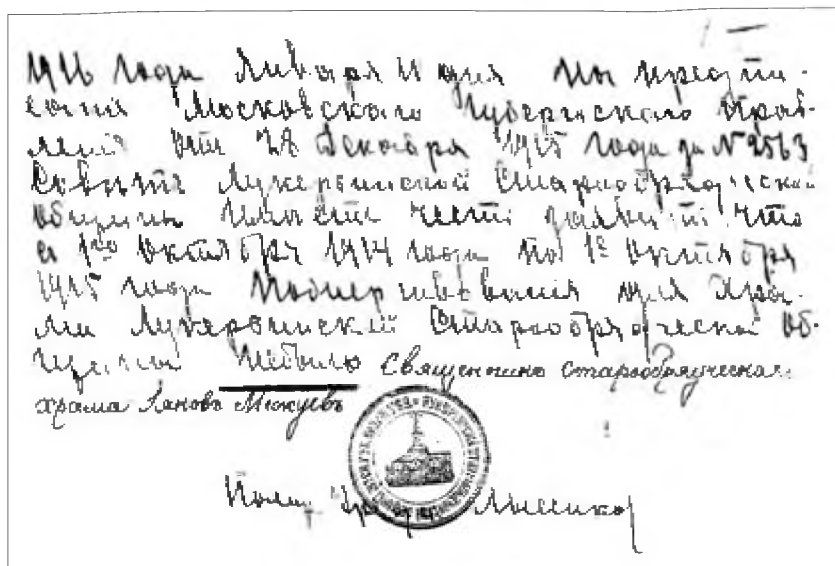 1916 года Января 11 дня по предпи-
санию Московского Губернского Прав-
ления от 28 Декабря 1915 года за № 2563
Советъ Лукерьинской Старообрядческой
общины имеетъ честь заявить что
с 1го Октября 1914 года по 1е Октября
1915 года пожертвования для Хра-
ма Лукерьинской Старообрядческой об-
щины Небыло Священникъ старообрядческаго
храма Яковъ